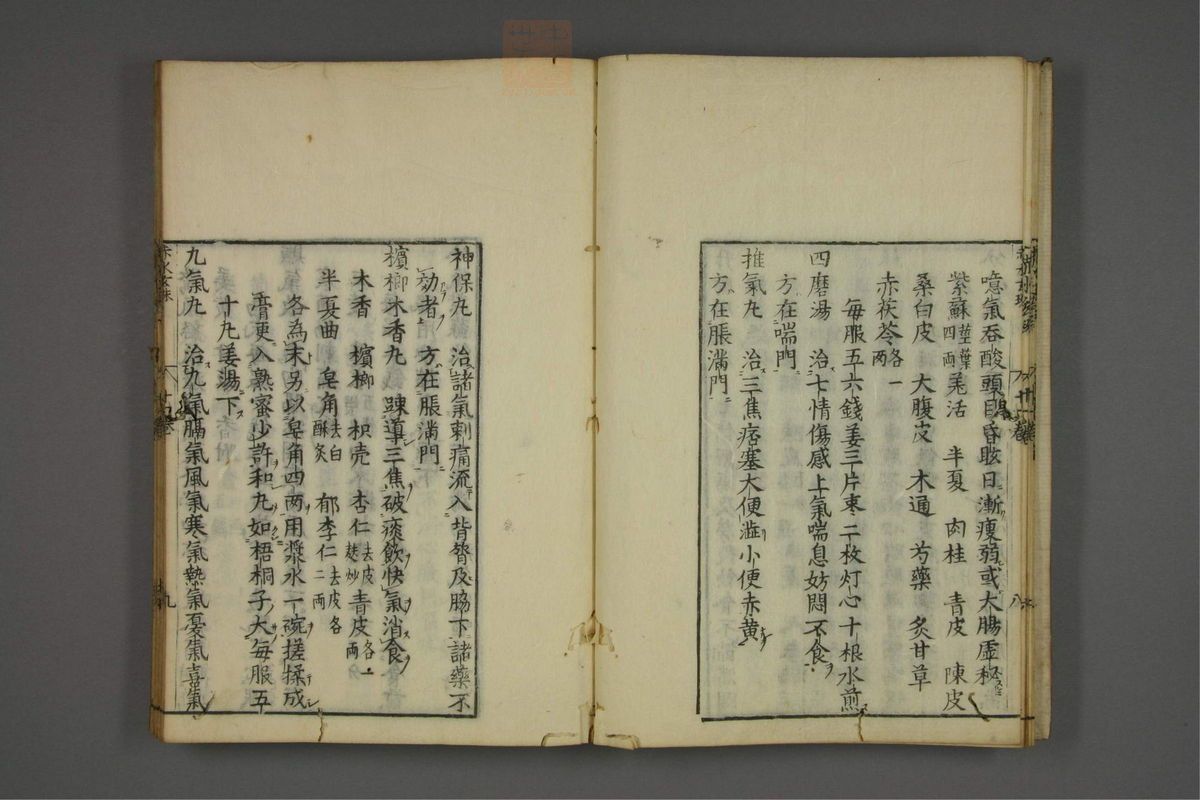 噫氣吞酸頭目昏眩日漸瘦弱或大腸虛秘
紫蘇莖葉四兩 羌活 半夏 肉桂 青皮 陳皮
桑白皮 大腹皮 木通 芍藥 炙甘草
赤茯苓各一兩
每服五六錢姜三片束二枚灯心十根水煎
四磨湯 治七情傷感上氣喘息妨悶不食
方在喘門
推氣丸 治三焦痞塞大便澁小便赤黄
方在脹滿門
神保丸 治諸氣刺痛流入背膂及脇下諸藥不
効者 方在脹滿門
檳榔木香丸 踈導三焦破痰飲快氣消食
木香 檳榔 枳壳 杏仁去皮麩炒 青皮各一兩
半夏曲 皂角去白酥炙 郁李仁去皮各二兩
各為末另以皂角四两用漿水一碗搓揉成
膏更入熟蜜少許和丸如梧桐子大每服五
十丸姜湯下
九氣丸 治九氣膈氣風氣寒氣熱氣憂氣喜氣